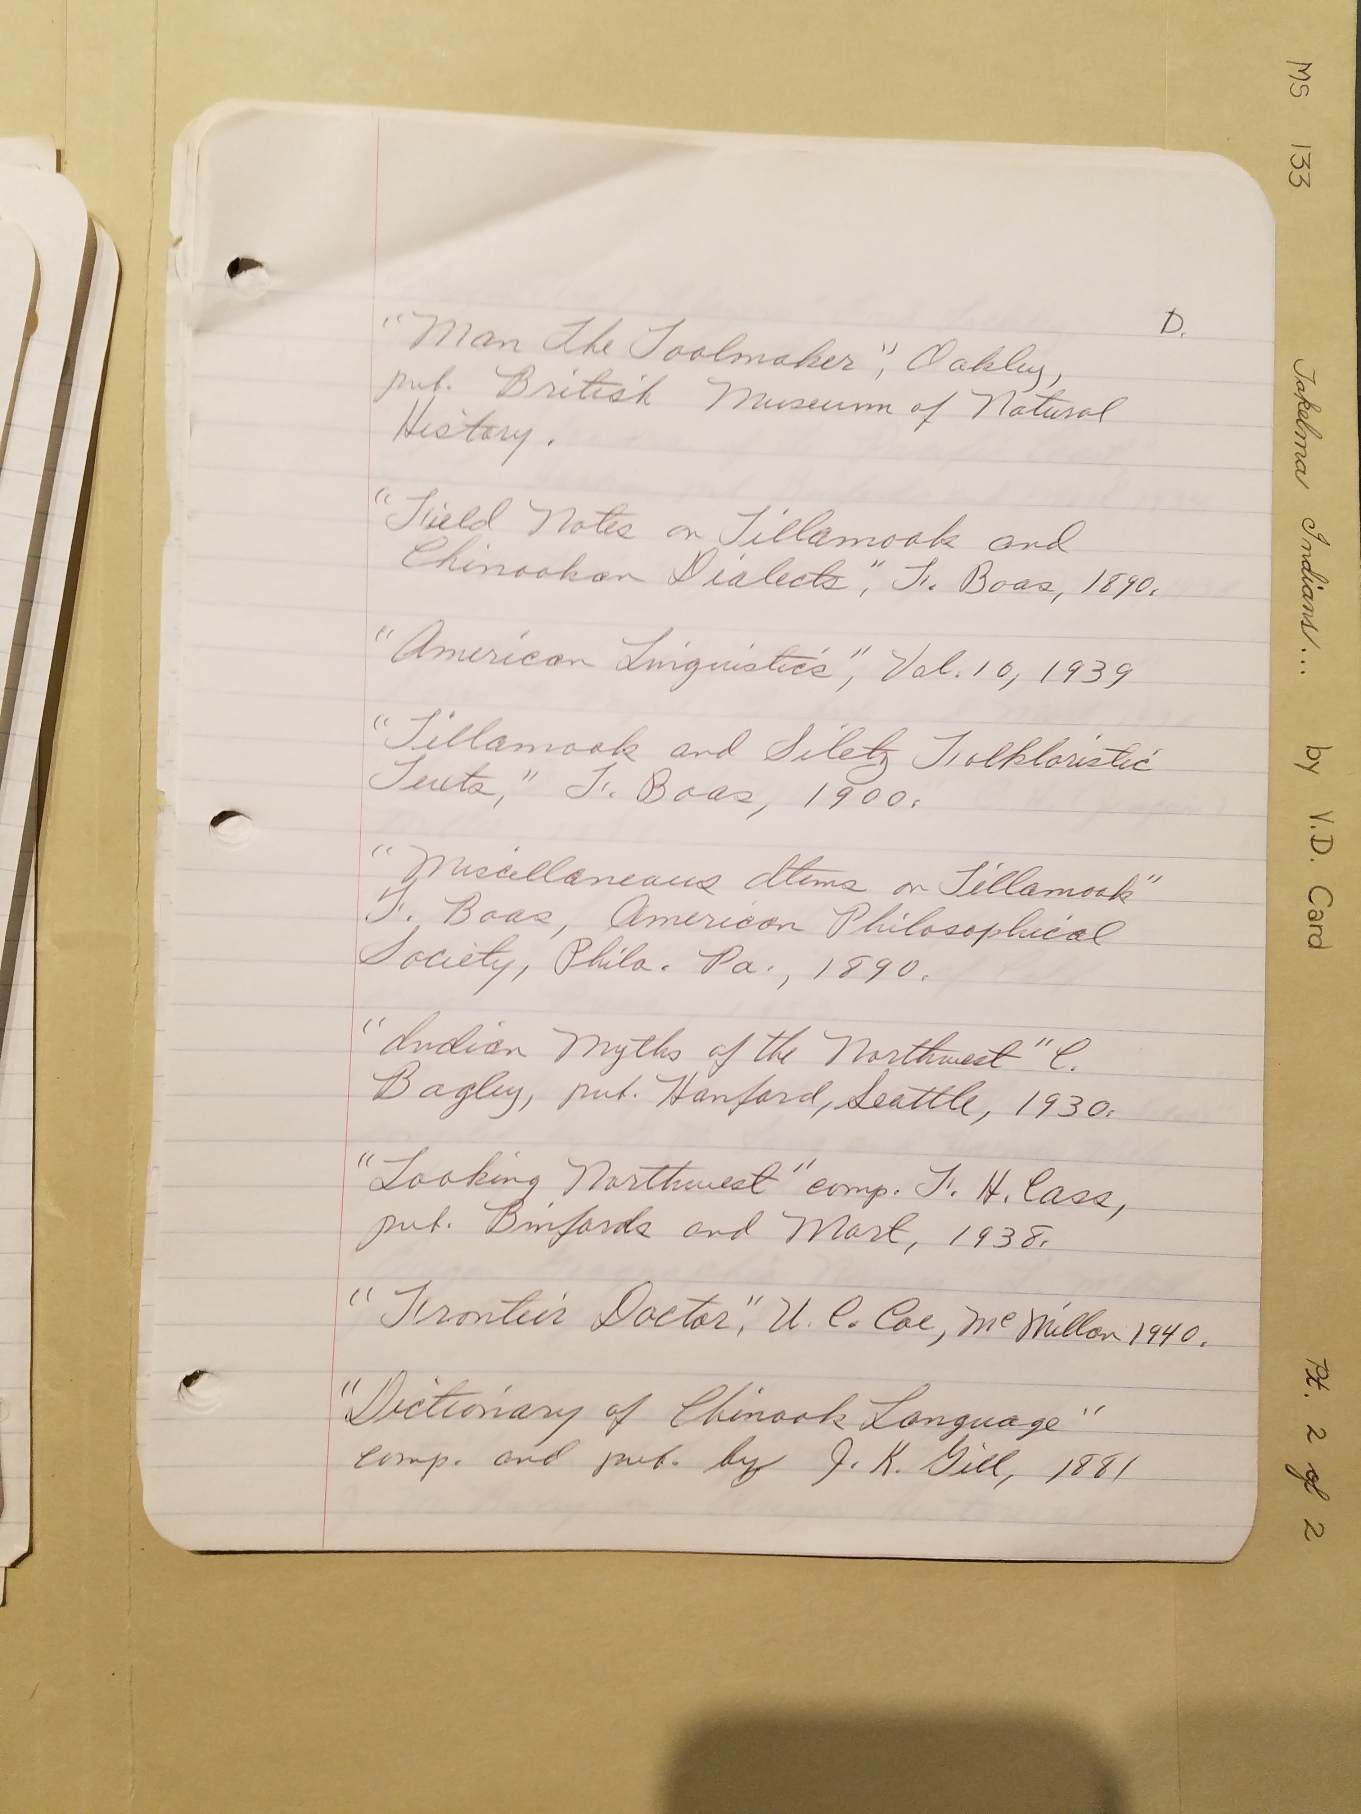 D.
"Man the Toolmaker", Oakley,
pub. British Museum of Natural
History.
"Field Notes on Tillamook and
Chinookan Dialects", F. Boas, 1890.
"American Linguistics", Vol. 10, 1939
"Tillamook and Siletz Folkloristic
Texts," F. Boas, 1900.
"Miscellaneous Items on Tillamook"
F. Boas, American Philosophical
Society, Phila. Pa., 1890.
"Indian Myths of the Northwest" C.
Bagley, pub. Hanford, Seattle, 1930.
"Looking Northwest" comp. F. H. Cass,
pub. Binfords and Mort, 1938.
"Frontier Doctor", U. C. Coe, McMillan 1940.
"Dictionary of Chinook Language"
comp. and pub. by J. K. Gill, 1881
MS 133 Takelma Indians... by V.D. Card Pt. 2 of 2